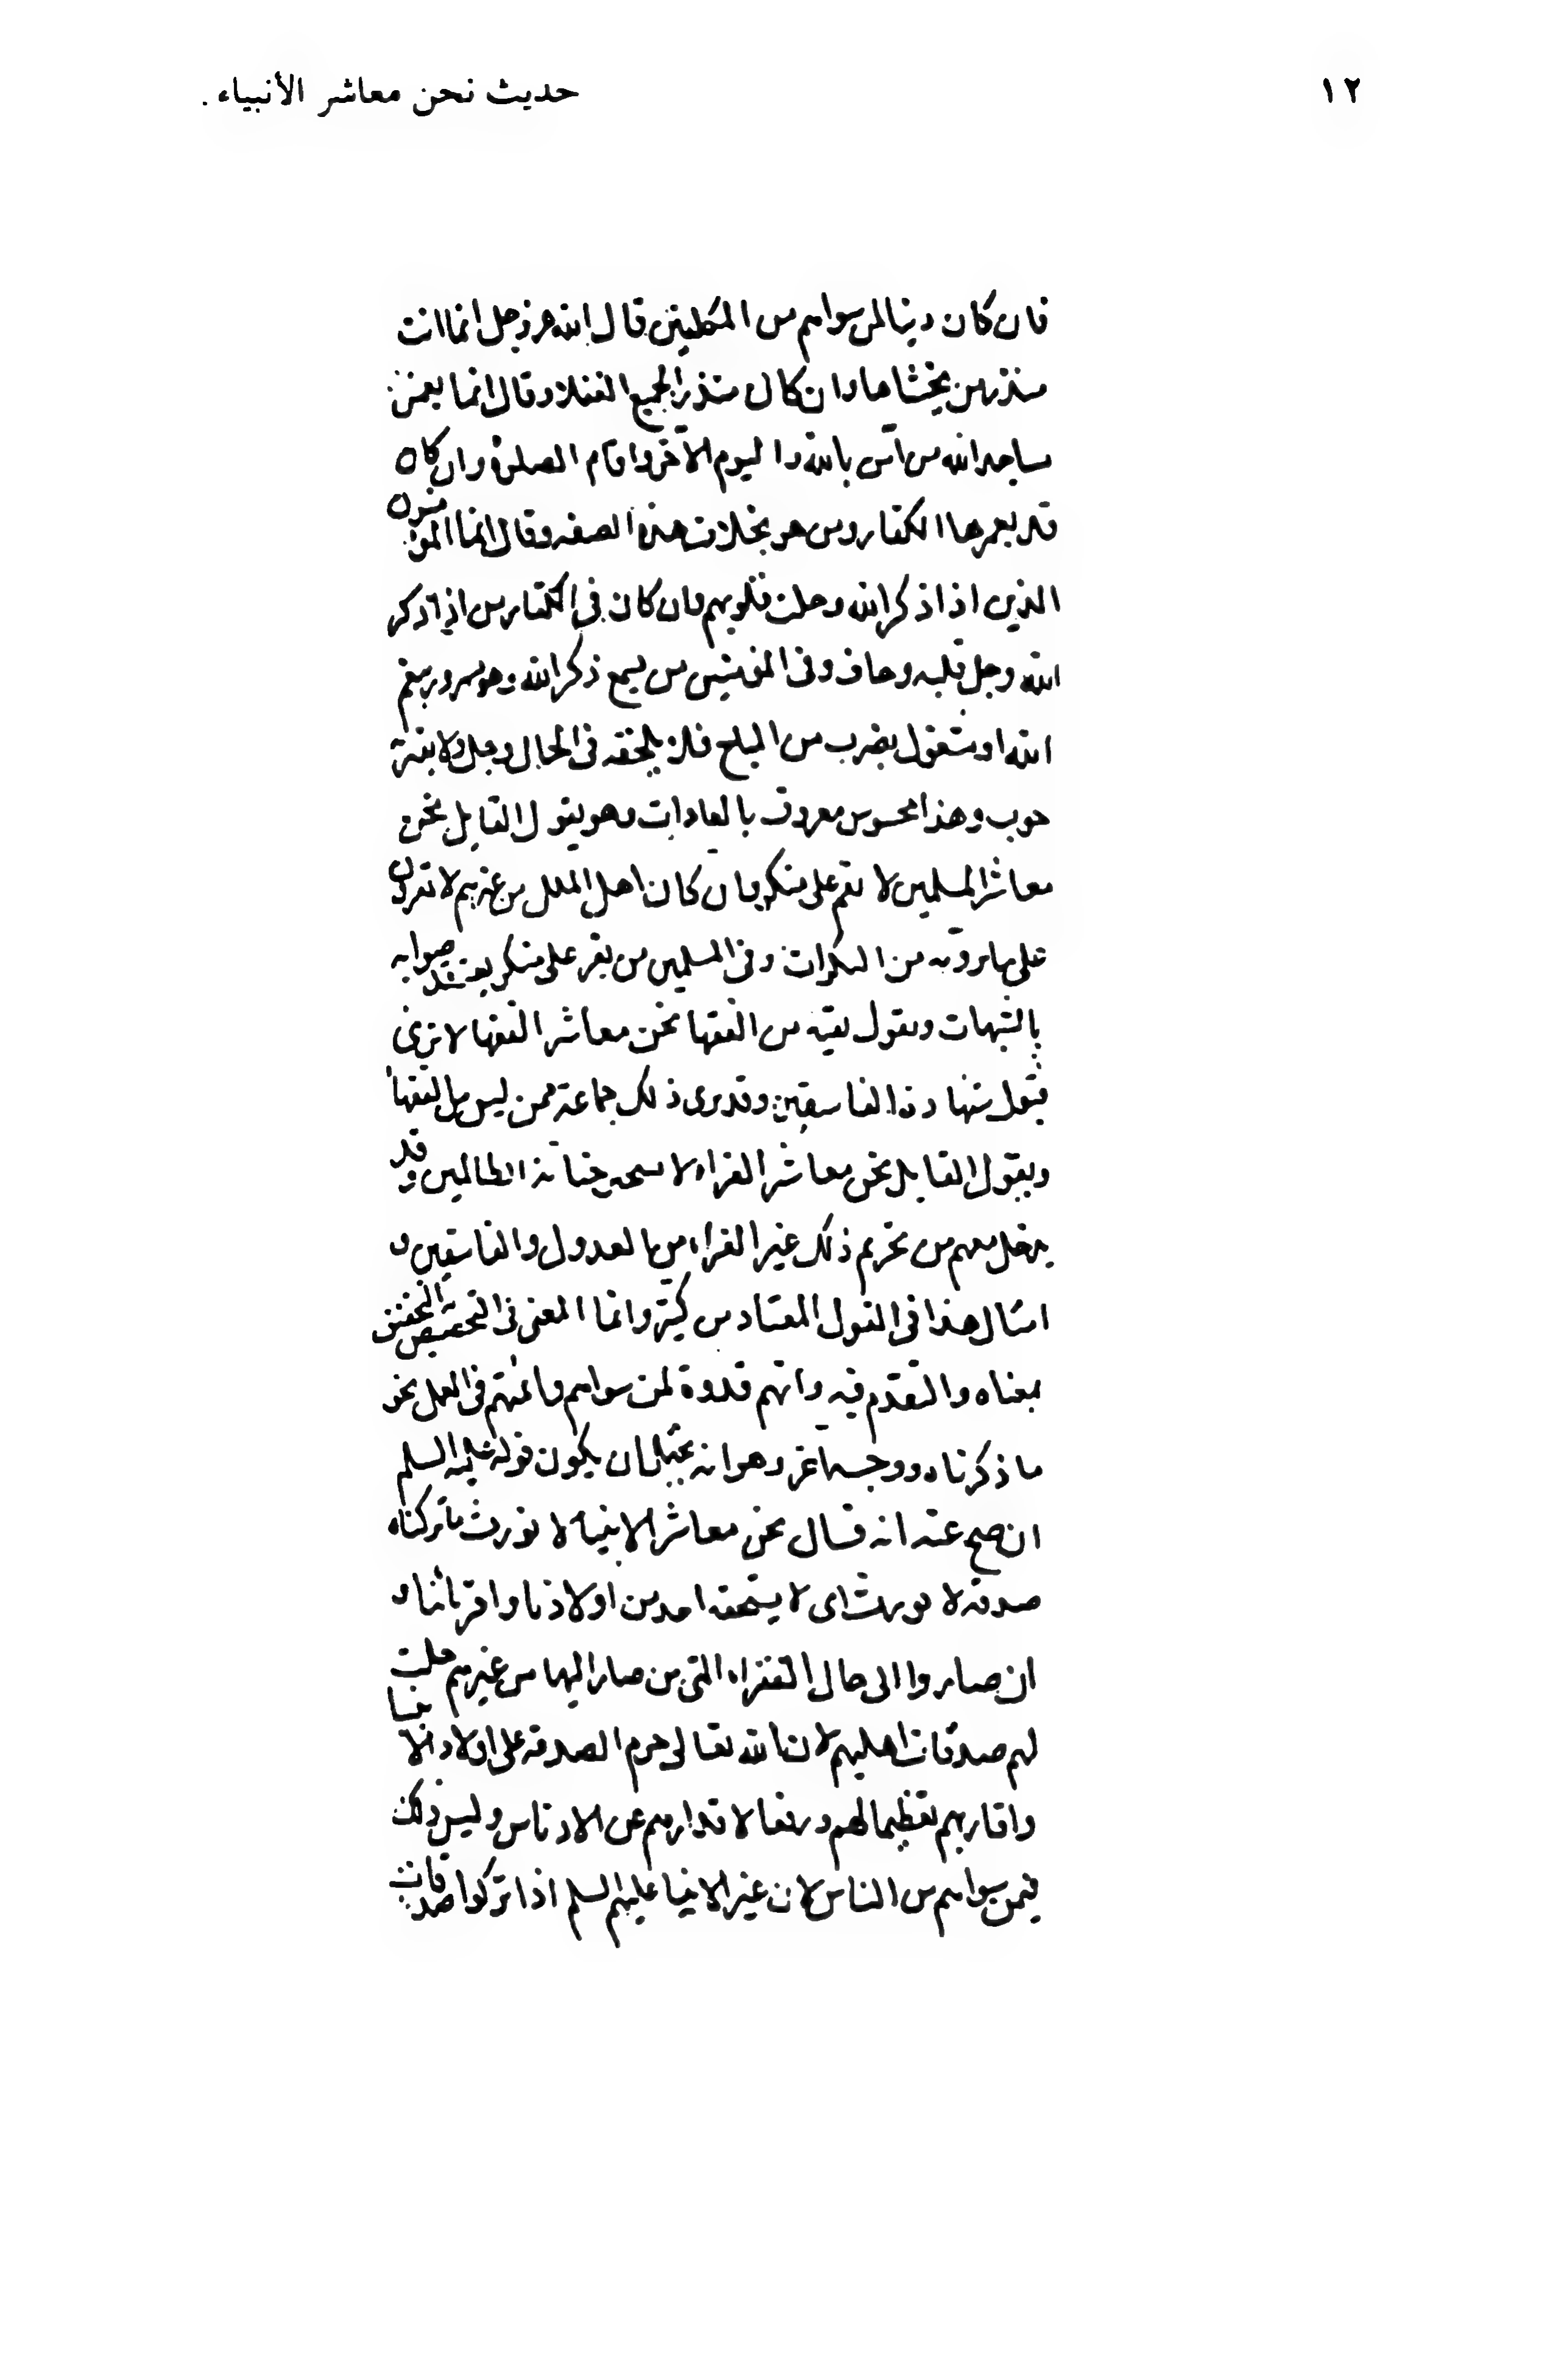 ١٢
حديث نحن معاشر الأنبياء .
فان كان دينا لمن سواهم من المكلفين قال الله عز وجل انما انت
منذر من يخشاها وان كان منذرا لجميع العقلاء وقال انما يعمر
مساجد الله من آمن بالله واليوم الآخر واقام الصلوة وان كان
قد يعمرها الكفار ومن هو بخلاف هذه الصفه وقال انما المؤمنون
الذين اذا ذكر الله وجلت قلوبهم وان كان في الكفار من اذا ذكر
الله وجل قلبه وخاف وفى المؤمنين من يسمع ذكر الله وهو مسرور بنعم
الله او مشغول بضرب من المباح فلا يلحقه فى الحال وجل ولا يعتريه
خوب وهذا محسوس معروف بالعادات وهو يقول القايل نحن
معاشر المسلمين لا نقر على منكر وان كان اهل الملل من غيرهم لا تقرون
على ما يرونه من المنكرات وفى المسلمين من يقر على منكر يعتقد صوابه
بالشبهات ويقول فقيه من الفقها نحن معاشر الفقها لا نرى
قبول شهادة الفاسقين وقد يرى ذلك جماعة ممن ليس من الفقها
ويقول القايل نحن معاشر القراء لا نستجيز خيانة الظالمين وقد
يدخل معهم من تحريم ذلك غير القراء من العدول والفاسقين و
امثال هذا فى القول المعتاد من كثير وانما المعنى فى التخصيص التحقيق
بمعناه والتقدم فيه وانهم قدوة لمن سواهم وائمتهم فى العمل نحو
ما ذكرناه ووجه آخر وهو انه يحتمل ان يكون قوله عليه السلم
ان صح عنه انه قال نحن معاشر الانبياء لا نورث ما تركناه
صدقة لا يورث اى لا يستحقه احد من اولادنا واقربائنا و
ان صاروا الى حال الفقراء التى من صار اليها من غيرهم حلت
لهم صدقات اهليهم لان الله تعالى حرم الصدقة على اولاد الانبيا
واقاربهم تعظيما لهم ورفعا لاقدارهم عن الادناس وليس ذلك
فيمن سواهم من الناس لان غير الانبيا عليهم السلم اذا تركوا صدقات